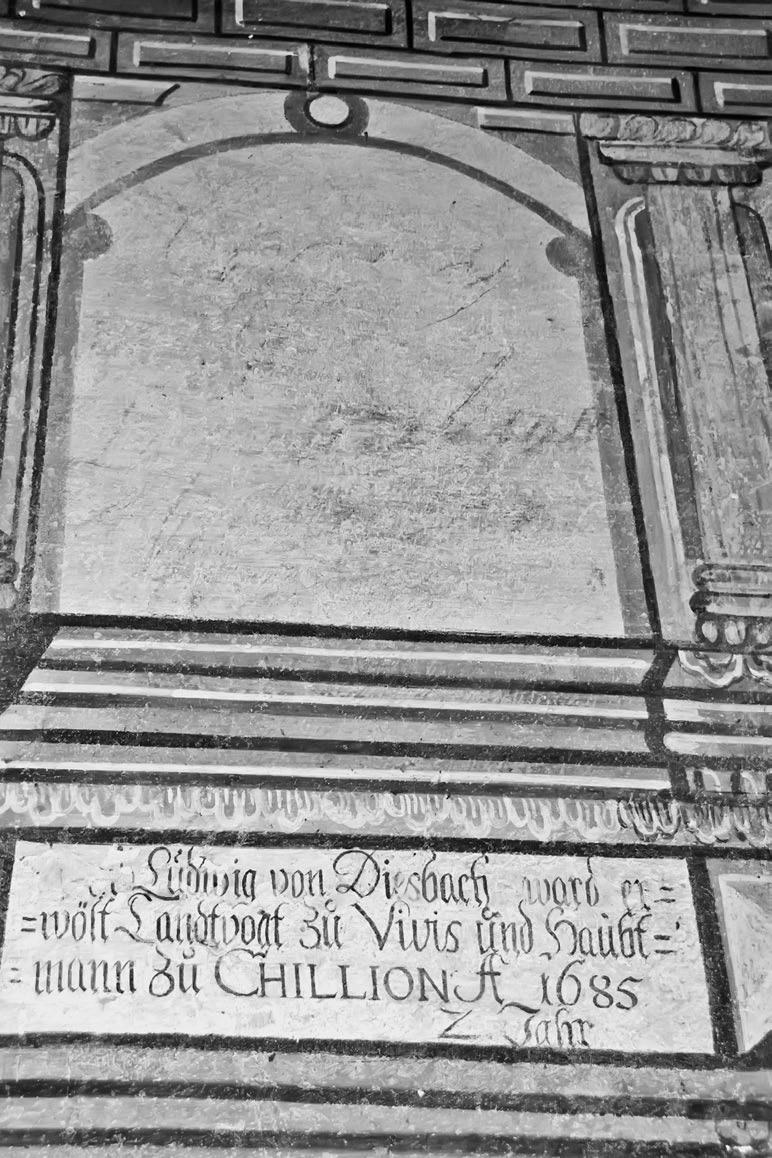 Ludwig von Diesbach ward er=
=wölt Landtvogt zů Vivis und Haubt=
=mann zů CHILLION A 1685
Z Jahr